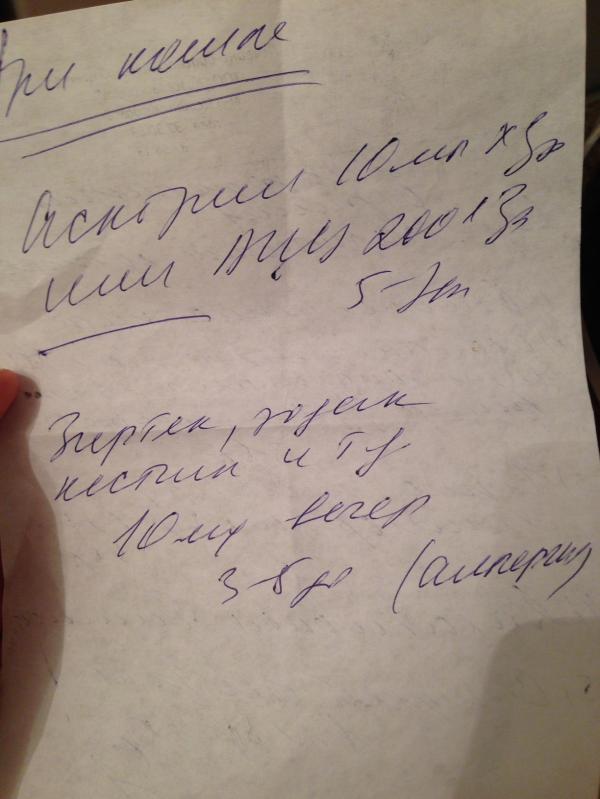 При кашле
Аскорил 10 мл х 3р
или АЦЦ 200 х 3р
5-7дн
Зиртек, зодак
кестин и тд
10 мг вечер
3-5дн (аллергия)